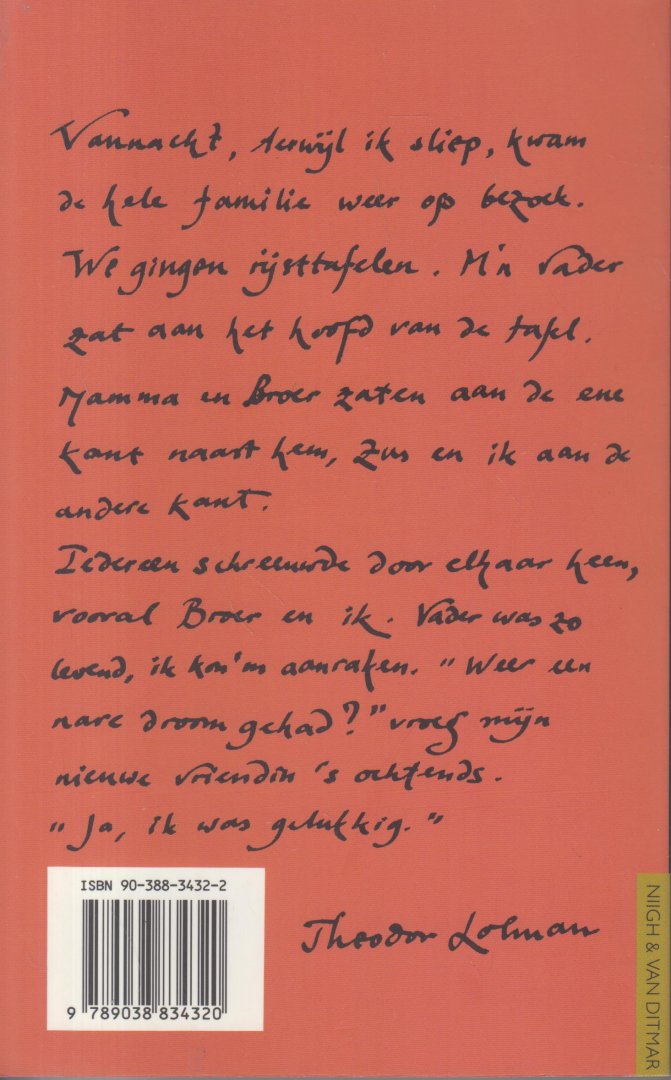 Vannacht, terwijl ik sliep, kwam
de hele familie weer op bezoek.
We gingen rijsttafelen. M'n vader
zat aan het hoofd van de tafel.
Mamma en Broer zaten aan de ene
kant naast hem, Zus en ik aan de
andere kant.
Iedereen schreeuwde door elkaar heen,
vooral Broer en ik. Vader was zo
levend, ik kon'm aanraken. "Weer een
nare droom gehad?" vroeg mijn
nieuwe vriendin 's ochtends.
"Ja, ik was gelukkig."
Theodor Holman
ISBN 90-388-3432-2
9 789038 834320
NIJGH & VAN DITMAR